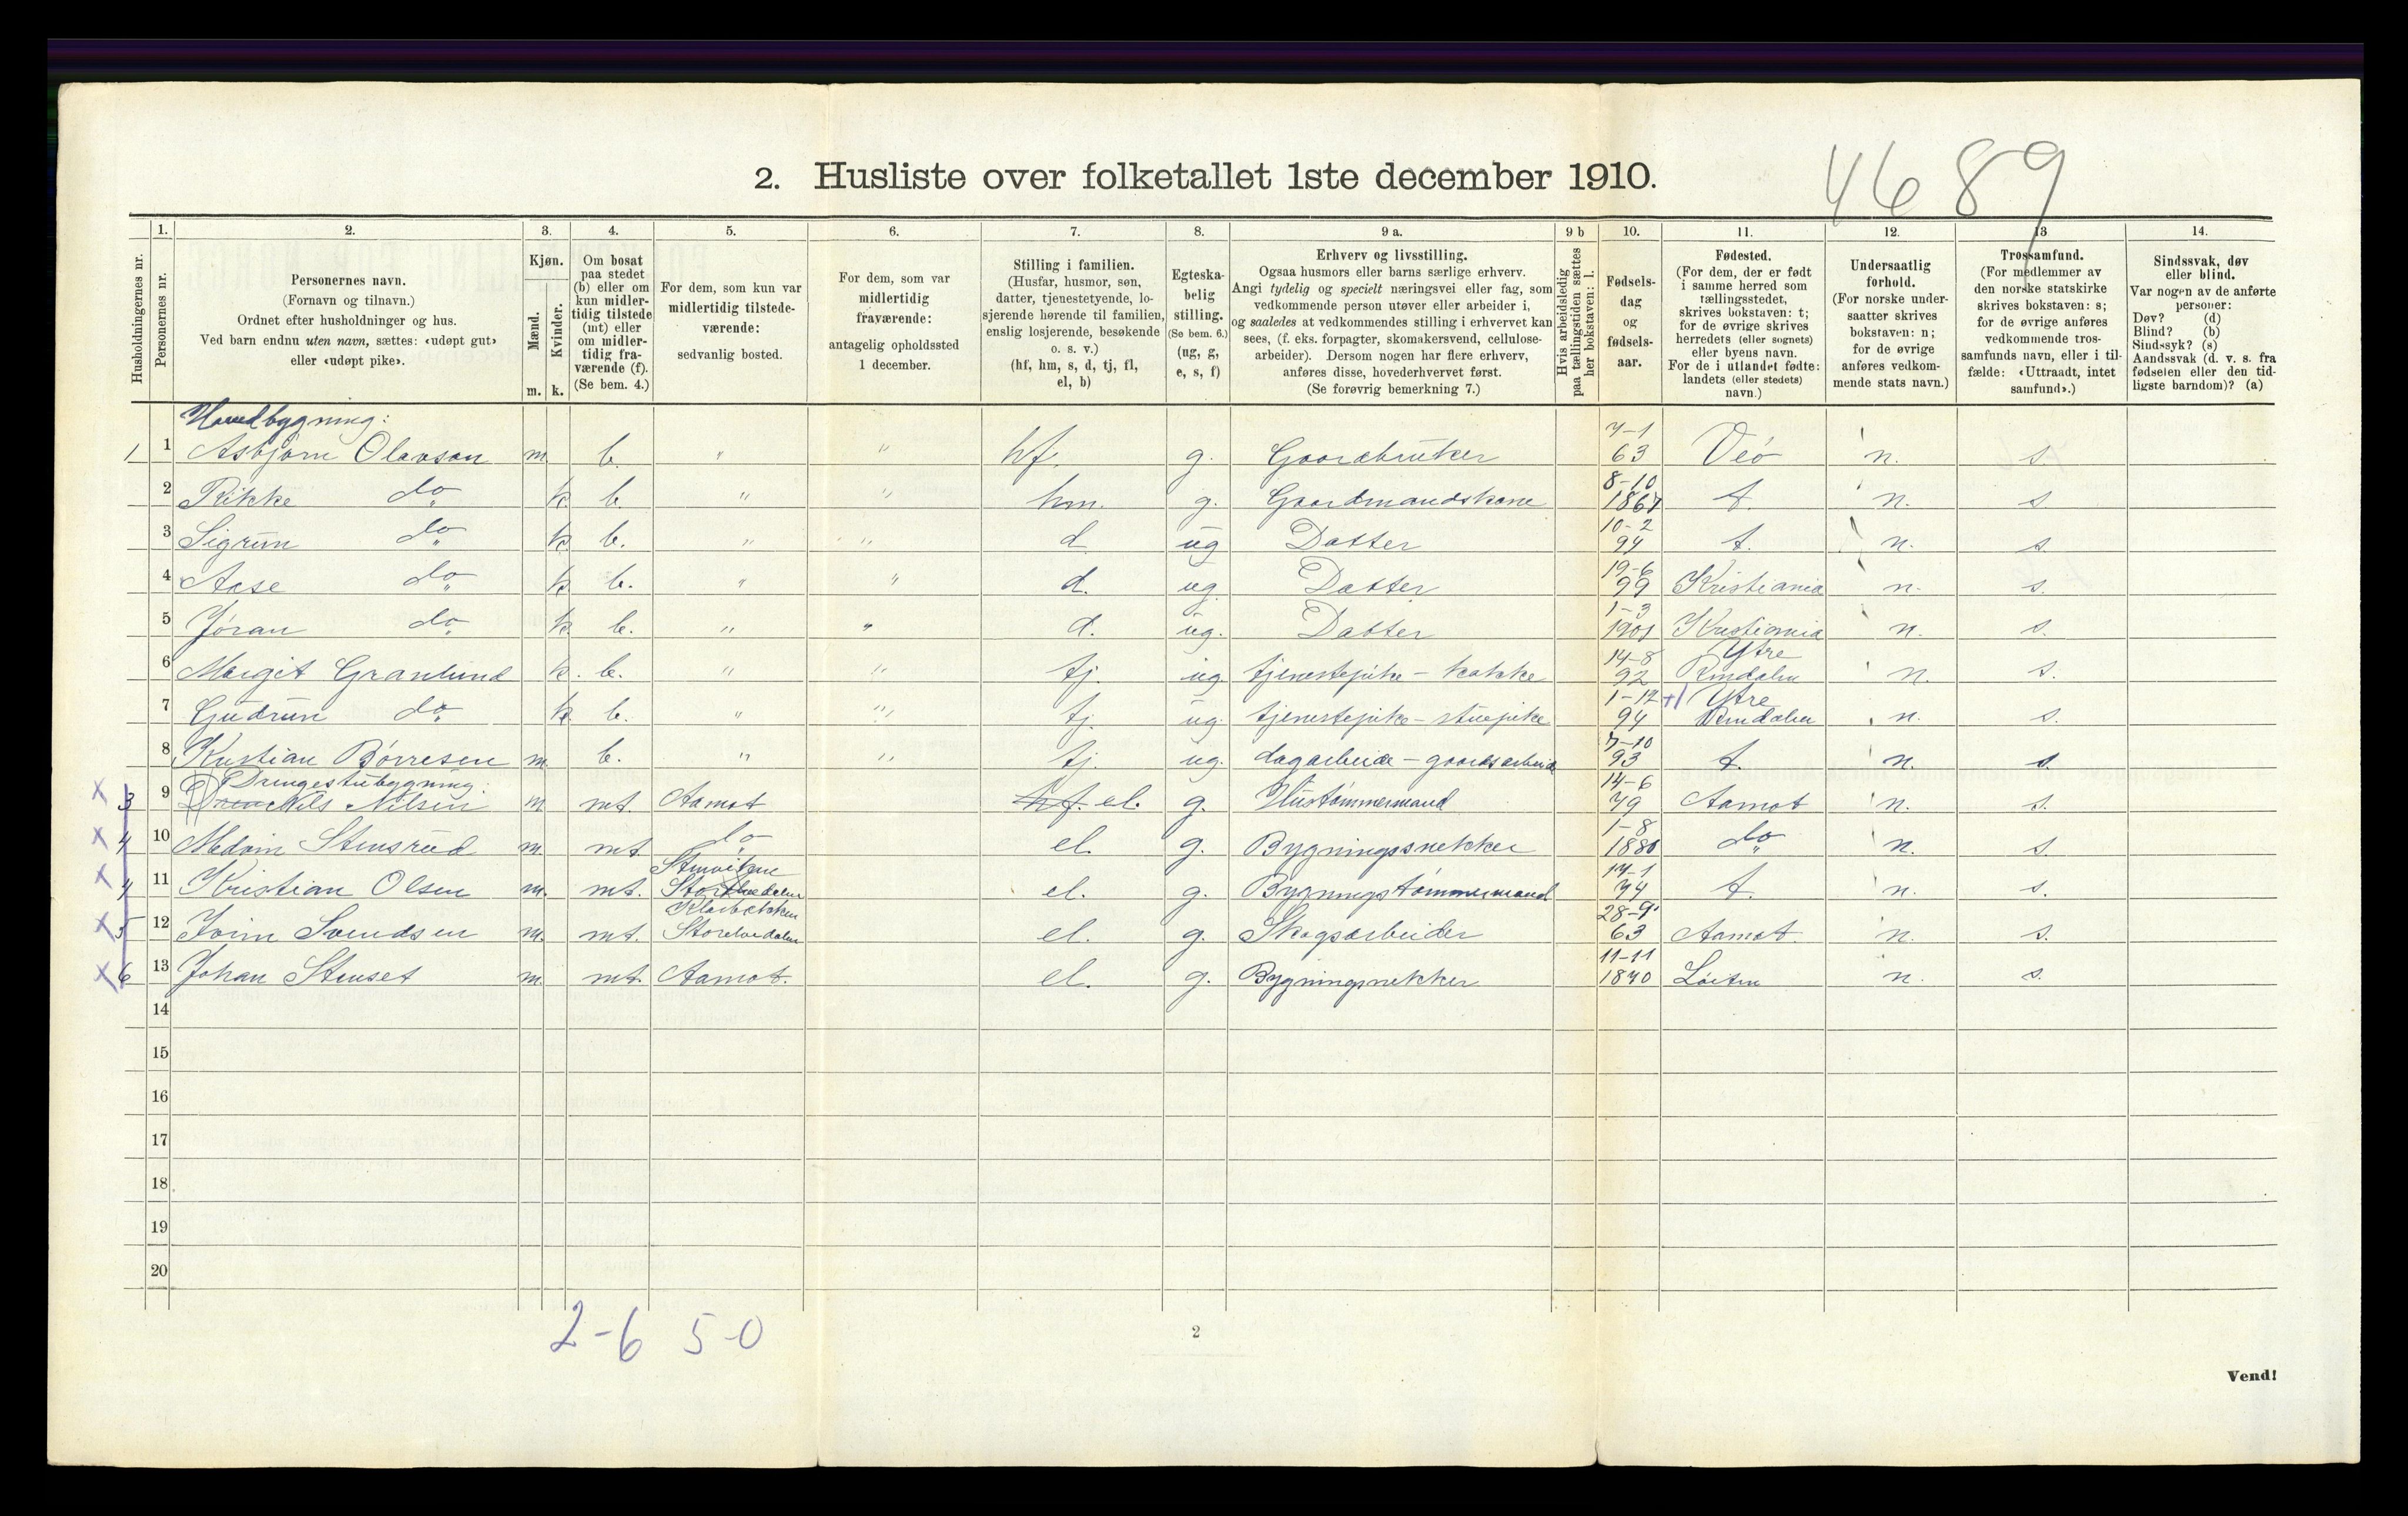 4689
2. Husliste over folketallet 1ste december 1910.
Husholdningernes nr.
1.
Personernes nr.
2.
Personernes navn.
(Fornavn og tilnavn.)
Ordnet efter husholdninger og hus.
Ved barn endnu uten navn, sættes: «udøpt gut»
eller «udøpt pike».
3.
Kjøn.
Mænd. Kvinder.
m. k.
4.
Om bosat
paa stedet
(b) eller om
kun midler-
tidig tilstede
(mt) eller
om midler-
tidig fra-
værende (f).
(Se bem. 4.)
5.
For dem, som kun var
midlertidig tilstede-
værende:
sedvanlig bosted.
6.
For dem, som var
midlertidig
fraværende:
antagelig opholdssted
1 december.
7.
Stilling i familien.
(Husfar, husmor, søn,
datter, tjenestetyende, lo-
sjerende hørende til familien,
enslig losjerende, besøkende
o. s. v.)
(hf, hm, s, d, tj, fl,
el, b)
8.
Egteska-
belig
stilling.
(Se bem. 6.)
(ug, g,
e, s, f)
9 a.
Erhverv og livsstilling.
Ogsaa husmors eller barns særlige erhverv.
Angi tydelig og specielt næringsvei eller fag, som
vedkommende person utøver eller arbeider i,
og saaledes at vedkommendes stilling i erhvervet kan
sees, (f. eks. forpagter, skomakersvend, cellulose-
arbeider). Dersom nogen har flere erhverv,
anføres disse, hovederhvervet først.
(Se forøvrig bemerkning 7.)
9 b
Hvis arbeidsledig
paa tællingstiden sættes
her bokstaven: l.
10.
Fødsels-
dag
og
fødsels-
aar.
11.
Fødested.
(For dem, der er født
i samme herred som
tællingsstedet,
skrives bokstaven: t;
for de øvrige skrives
herredets (eller sognets)
eller byens navn.
For de i utlandet fødte:
landets (eller stedets)
navn.)
12.
Undersaatlig
forhold.
(For norske under-
saatter skrives
bokstaven: n;
for de øvrige
anføres vedkom-
mende stats navn.)
13
Trossamfund.
(For medlemmer av
den norske statskirke
skrives bokstaven: s;
for de øvrige anføres
vedkommende tros-
samfunds navn, eller i til-
fælde: «Uttraadt, intet
samfund».)
14.
Sindssvak, døv
eller blind.
Var nogen av de anførte
personer:
Døv? (d)
Blind? (b)
Sindssyk? (s)
Aandssvak (d. v. s. fra
fødselen eller den tid-
ligste barndom)? (a)
Hovedbygning:
1 1 Asbjørn Olavson m. b. " " hf. g. Gaardbruker 7-1 63 Veó n. s.
2 Rikke do k. b. " " hm. g. Gaardmandskone 8-10 1867 t. n. s
3 Sigrun do k b. " " d ug Datter 10-2 94 t. n. s.
4 Aase do k b. " " d. ug. Datter 19-6 99 Kristiania n. s.
5 Jóran do k. b. " " d. ug. Datter 1-3 1901 Kristiania n. s.
6 Margit Granlund k. b. " " tj. ug. tjenestepike - kokke 14-8 92 Ytre Rendalen n. s.
7 Gudrun do k. b. " " tj. ug. tjenestepike - stuepike 1-12 94 Ytre Rendalen n. s.
8 Kristian Børresen m b. " " tj. ug. dagarbeide - gaardsarbeide 7-10 93 t. n. s.
Drengestubygning.
x 3 9 Nils Nilsen m mt. Aamot hf. el. g. Hustømmermand 14-6 79 Aamot n. s.
x 4 10 Stensrud m. mt do el. g. Bygningssnekker 1-8 1880 do n. s.
x 4 11 Kristian Olsen m. mt. Stenviken Storelvedalen el. g. Bygningstømmermand 14-1 74 t. n. s.
x 5 12 Ivim Svendsen m. mt. Storelvedalen el. g. Skogsarbeider 28-9 63 Aamot. n. s.
x 6 13 Johan Stenset m. mt. Aamot. el. g. Bygningsnekker 11-11 1840 Løiten n. s.
14
15
16
17
18
19
20
2-6 5-0
2
Vend!